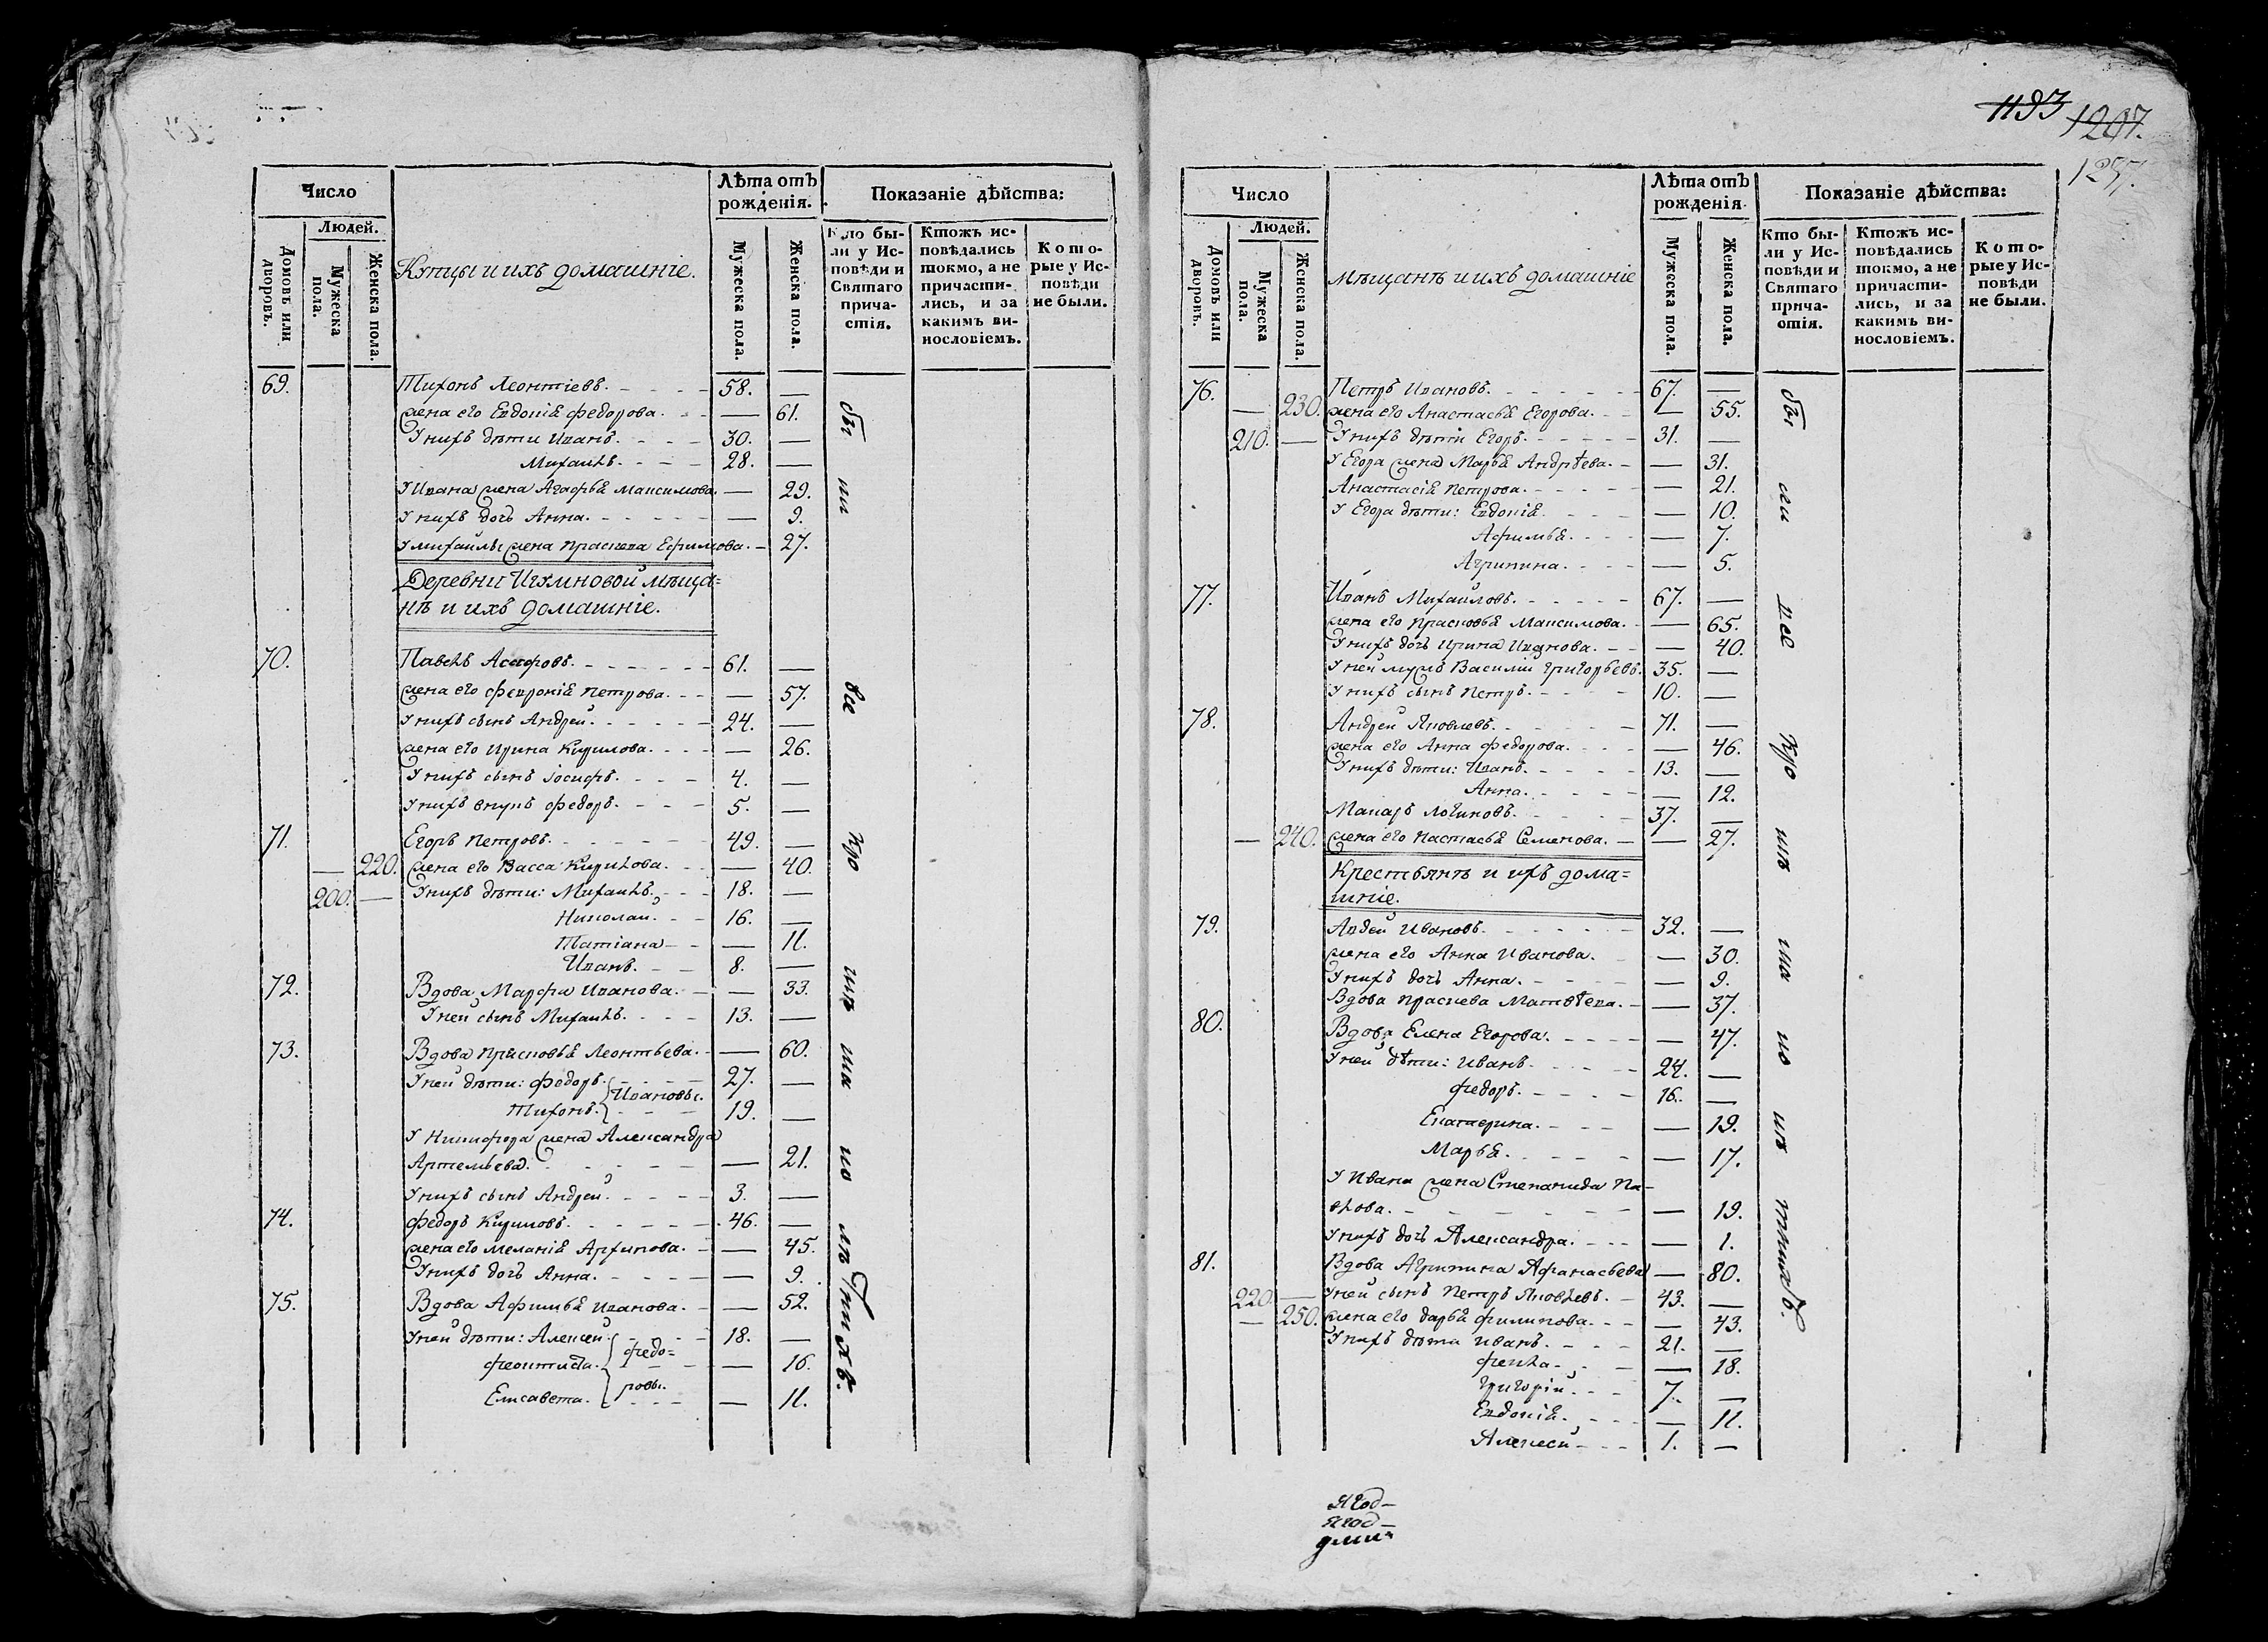 1193 1207.
Число
Людей.
Домовъ или дворовъ.
Мужеска пола.
Женска пола.
Купцы и ихъ домашніе.
Лѣта отъ рожденія.
Мужеска пола.
Женска пола.
Показаніе дѣйства:
Кто бы-
ли у Ис-
повѣди и
Святаго
прича-
стія.
Ктожъ ис-
повѣдались
токмо, а не
причасти-
лись, и за
какимъ ви-
нословіемъ.
Кото-
рые у Ис-
повѣди
не были.
69. Тихонъ Леонтіевъ. 58. —
жена его Евдокія Федорова. — 61.
У нихъ дѣти Иванъ. 30. —
Михаилъ. 28. —
У Ивана жена Агафья Максимова. — 29.
У нихъ дочь Анна. — 9.
У Михайлы жена Праскева Ефимова. — 27.
Деревни Игумновой мѣща=
нѣ и ихъ домашніе.
70. Павелъ Асафовъ. 61. —
жена его Февронія Петрова. — 57.
У нихъ сынъ Андрей. 24. —
жена его Ирина Кирилова. — 26.
У нихъ сынъ Іосифъ. 4. —
У нихъ внукъ Федоръ. 5. —
71. Егоръ Петровъ. 49. —
— 220. жена его Васса Кирилова. — 40.
200. — У нихъ дѣти: Михаилъ. 18. —
Николай. 16. —
Татіана — 11.
Иванъ. 8. —
72. Вдова Марфа Иванова. — 33.
У ней сынъ Михаилъ. 13. —
73. Вдова Прасковья Леонтьева. — 60.
У ней дѣти: Федоръ. Ивановы. 27. —
Тихонъ. 19. —
У Никифора жена Александра
Артемьева. — 21.
У нихъ сынъ Андрей. 3. —
74. Федоръ Кириловъ. 46. —
жена его Меланія Архипова. — 45.
У нихъ дочь Анна. — 9.
75. Вдова Афимья Иванова. — 52.
У ней дѣти: Алексей. Федо= 18. —
Феоктиста. ровы. — 16.
Елисавета. — 11.
бы
ли
все
Число
Людей.
Домовъ или дворовъ.
Мужеска пола.
Женска пола.
Мѣщанѣ и ихъ домашніе
Лѣта отъ рожденія.
Мужеска пола.
Женска пола.
Показаніе дѣйства:
Кто бы-
ли у Ис-
повѣди и
Святаго
прича-
стія.
Ктожъ ис-
повѣдались
токмо, а не
причасти-
лись, и за
какимъ ви-
нословіемъ.
Кото-
рые у Ис-
повѣди
не были.
76. Петръ Ивановъ. 67. —
— 230. жена его Анастасья Егорова. — 55.
210. — У нихъ дѣти Егоръ. 31. —
У Егора жена Марья Андрѣева. — 31.
Анастасія Петрова. — 21.
У Егора дѣти: Евдокія. — 10.
Афимья. — 7.
Агрипина. — 5.
77. Иванъ Михайловъ. 67. —
жена его Прасковья Максимова. — 65.
У нихъ дочь Ирина Иванова. — 40.
У ней мужъ Василій Григорьевъ. 35. —
У нихъ сынъ Петръ. 10. —
78. Андрей Яковлевъ. 71. —
жена его Анна Федорова. — 46.
У нихъ дѣти: Иванъ. 13. —
Анна. — 12.
Макаръ Логиновъ. 37. —
— 240. жена его Настасья Семенова. — 27.
Крестьянѣ и ихъ дома=
шніе.
79. Авдей Ивановъ. 32. —
жена его Анна Иванова. — 30.
У нихъ дочь Анна. — 9.
Вдова Праскева Матвѣева. — 37.
80. Вдова Елена Егорова. — 47.
У ней дѣти: Иванъ. 24. —
Федоръ. 16. —
Екатерина. — 19.
Марья. — 17.
У Ивана жена Степанида Па-
влова. — 19.
У нихъ дочь Александра. — 1.
81. Вдова Агрипина Афанасьева — 80.
220. — У ней сынъ Петръ Яковлевъ. 43. —
— 250. жена его Дарья Филипова. — 43.
У нихъ дѣти Иванъ. 21. —
Фекла. — 18.
Григорій. 7. —
Евдокія. — 11.
Алексей 1. —
бы
ли
все